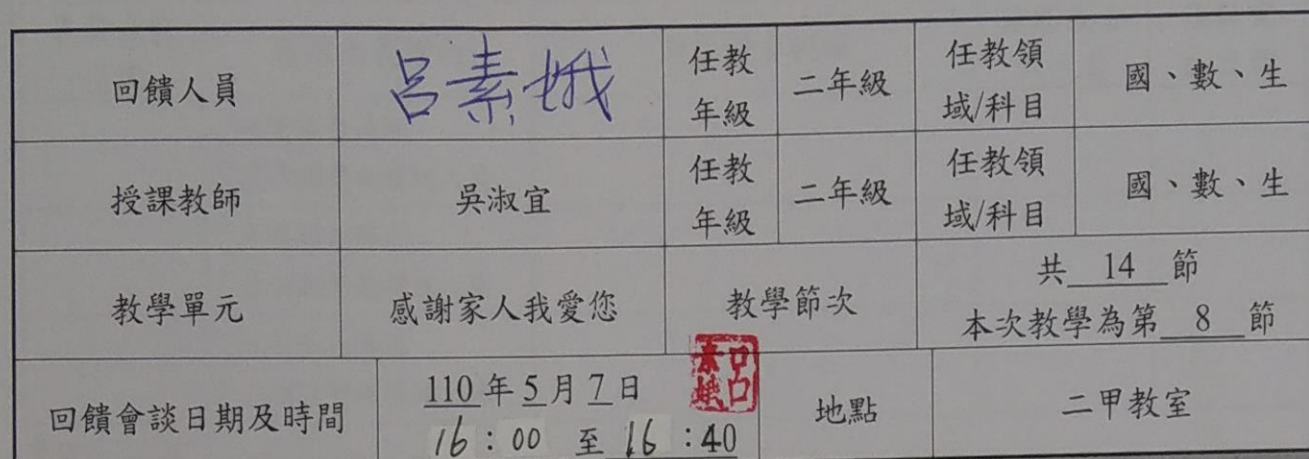 回饋人員 呂素娥 任教年級 二年級 任教領域/科目 國、數、生
授課教師 吳淑宜 任教年級 二年級 任教領域/科目 國、數、生
教學單元 感謝家人我愛您 教學節次 共 14 節
本次教學為第 8 節
回饋會談日期及時間 110年5月7日 呂素娥 地點 二甲教室
16:00 至 16:40